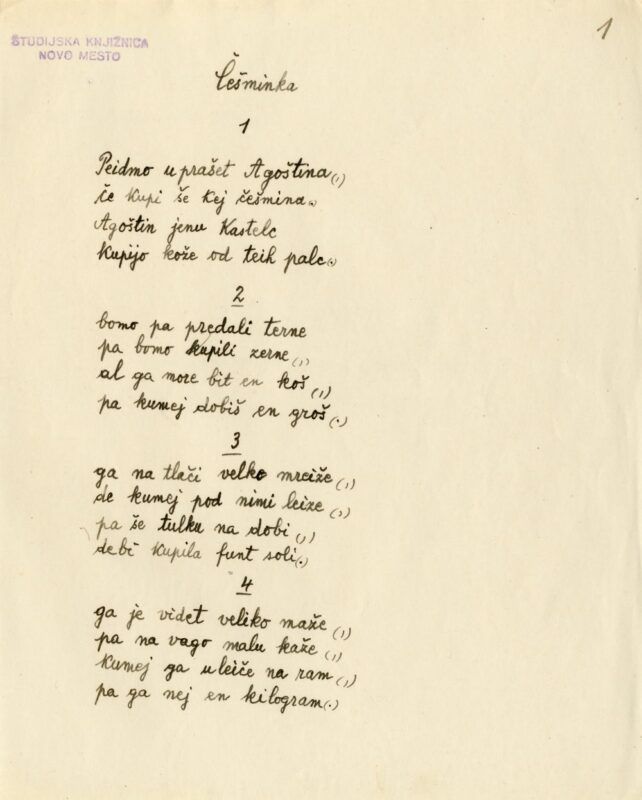 1
ŠTUDIJSKA KNJIŽNICA
NOVO MESTO
Češminka
1
Peidmo uprašet Agoština(,)
če kupi še kej češmina.
Agoštin jenu Kastelc
kupijo kože od teih palc(.)
2
bomo pa prędali terne
pa bomo kupili zerne(,)
al ga more bit en koš(,)
pa kumej dobiš en groš(.)
3
ga na tlači velko mreiže(,)
de kumej pod nimi leize(,)
pa še tulku na dobi(,)
debi kupila funt soli(.)
4
ga je videt veliko maže(,)
pa na vago malu kaže(,)
kumej ga uleiče na ram(,)
pa ga nej en kilogram(.)